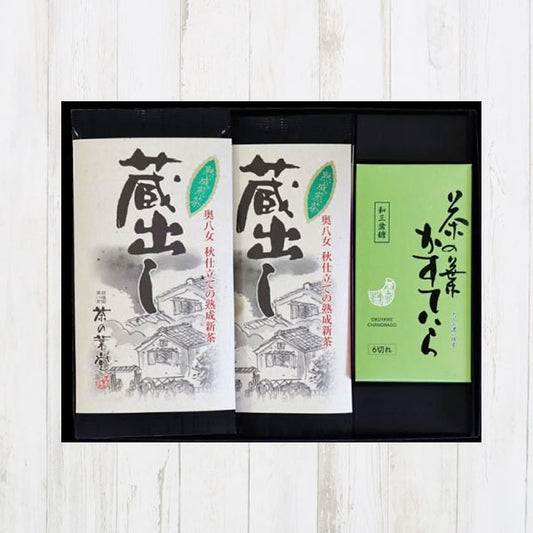 蔵出し
熟成新茶
奥八女 秋仕立ての熟成新茶
茶の葉堂
蔵出し
熟成新茶
奥八女 秋仕立ての熟成新茶
茶の葉
かすていら
和三盆糖
OKUYAME
CHANOHADO
6切れ